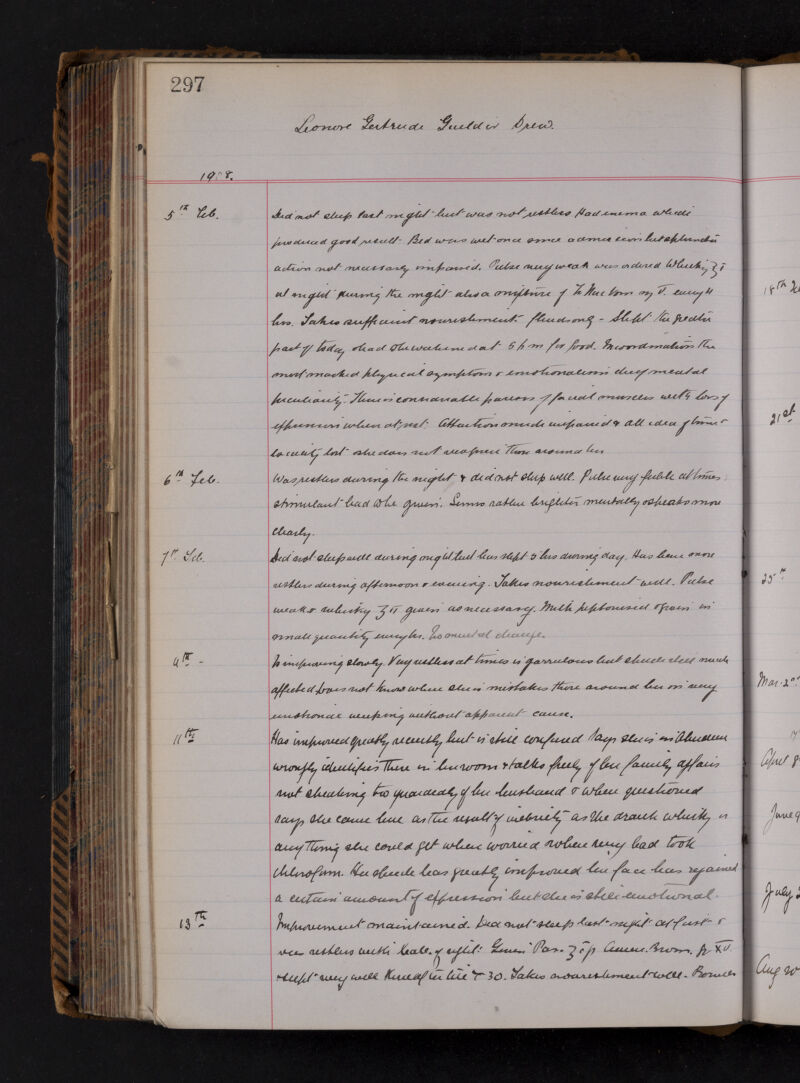 297
Leonore Gertrude Guelder Drew.
1908.
5th Feb. Did not sleep last night but was not restless Had enema which
produced good result. Bed was wet once since admission but sphincter
action not necessarily impaired. Pulse very weak was ordered Whisky ℥i
at night during the night also a mixture of Tr Nux Vom ♏ V. every 4
hrs. Takes sufficient nourishment - Slept the greater
part of today & had to be wakened at 5 p m for food. Incoordination the
most marked physical symptom & emotionalism chief mental
peculiarity. There is considerable paresis of facial muscles with loss of
expression when at rest. Attention much impaired & all idea of time &
locality lost & she does not recognise those around her
6th Feb. Was restless during the night & did not sleep well. Pulse very feeble at times
stimulant had to be given. Seems rather brighter mentally & speaks more
clearly.
7th Feb. Did not sleep well during night but has slept 5 hrs during day. Has been more
restless during afternoon & evening. Takes nourishment well. Pulse
weak & whisky ℥ii given as necessary. Milk peptonised & given in
small quantity every hr. No mental change.
9th - Is improving slowly. Very restless at times is garrulous but speech still much
affected Does not know where she is mistakes those around her is very
emotional weeping without apparent cause.
11th Has improved greatly recently but is still confused says she is in Aberdeen
wrongly identifies those in her room & talks freely of her family affairs
not speaking too guardedly of her husband & when questioned
says she came here as the result of inebriety as she drank whisky or
anything she could get when worried & when very bad took
chloroform. Her speech has greatly improved her face has regained
a certain amount of expression but she is still emotional.
13th Improvement maintained. Did not sleep last night at first &
was restless with of sight. Given Par. ℥ip Ammon. Brom. gr XV.
& slept very well thereafter till 7.30. Takes nourishment well. Bowels
18th
21st
25th
Mar. 2nd
April 8
June 9
July 2
Aug 20